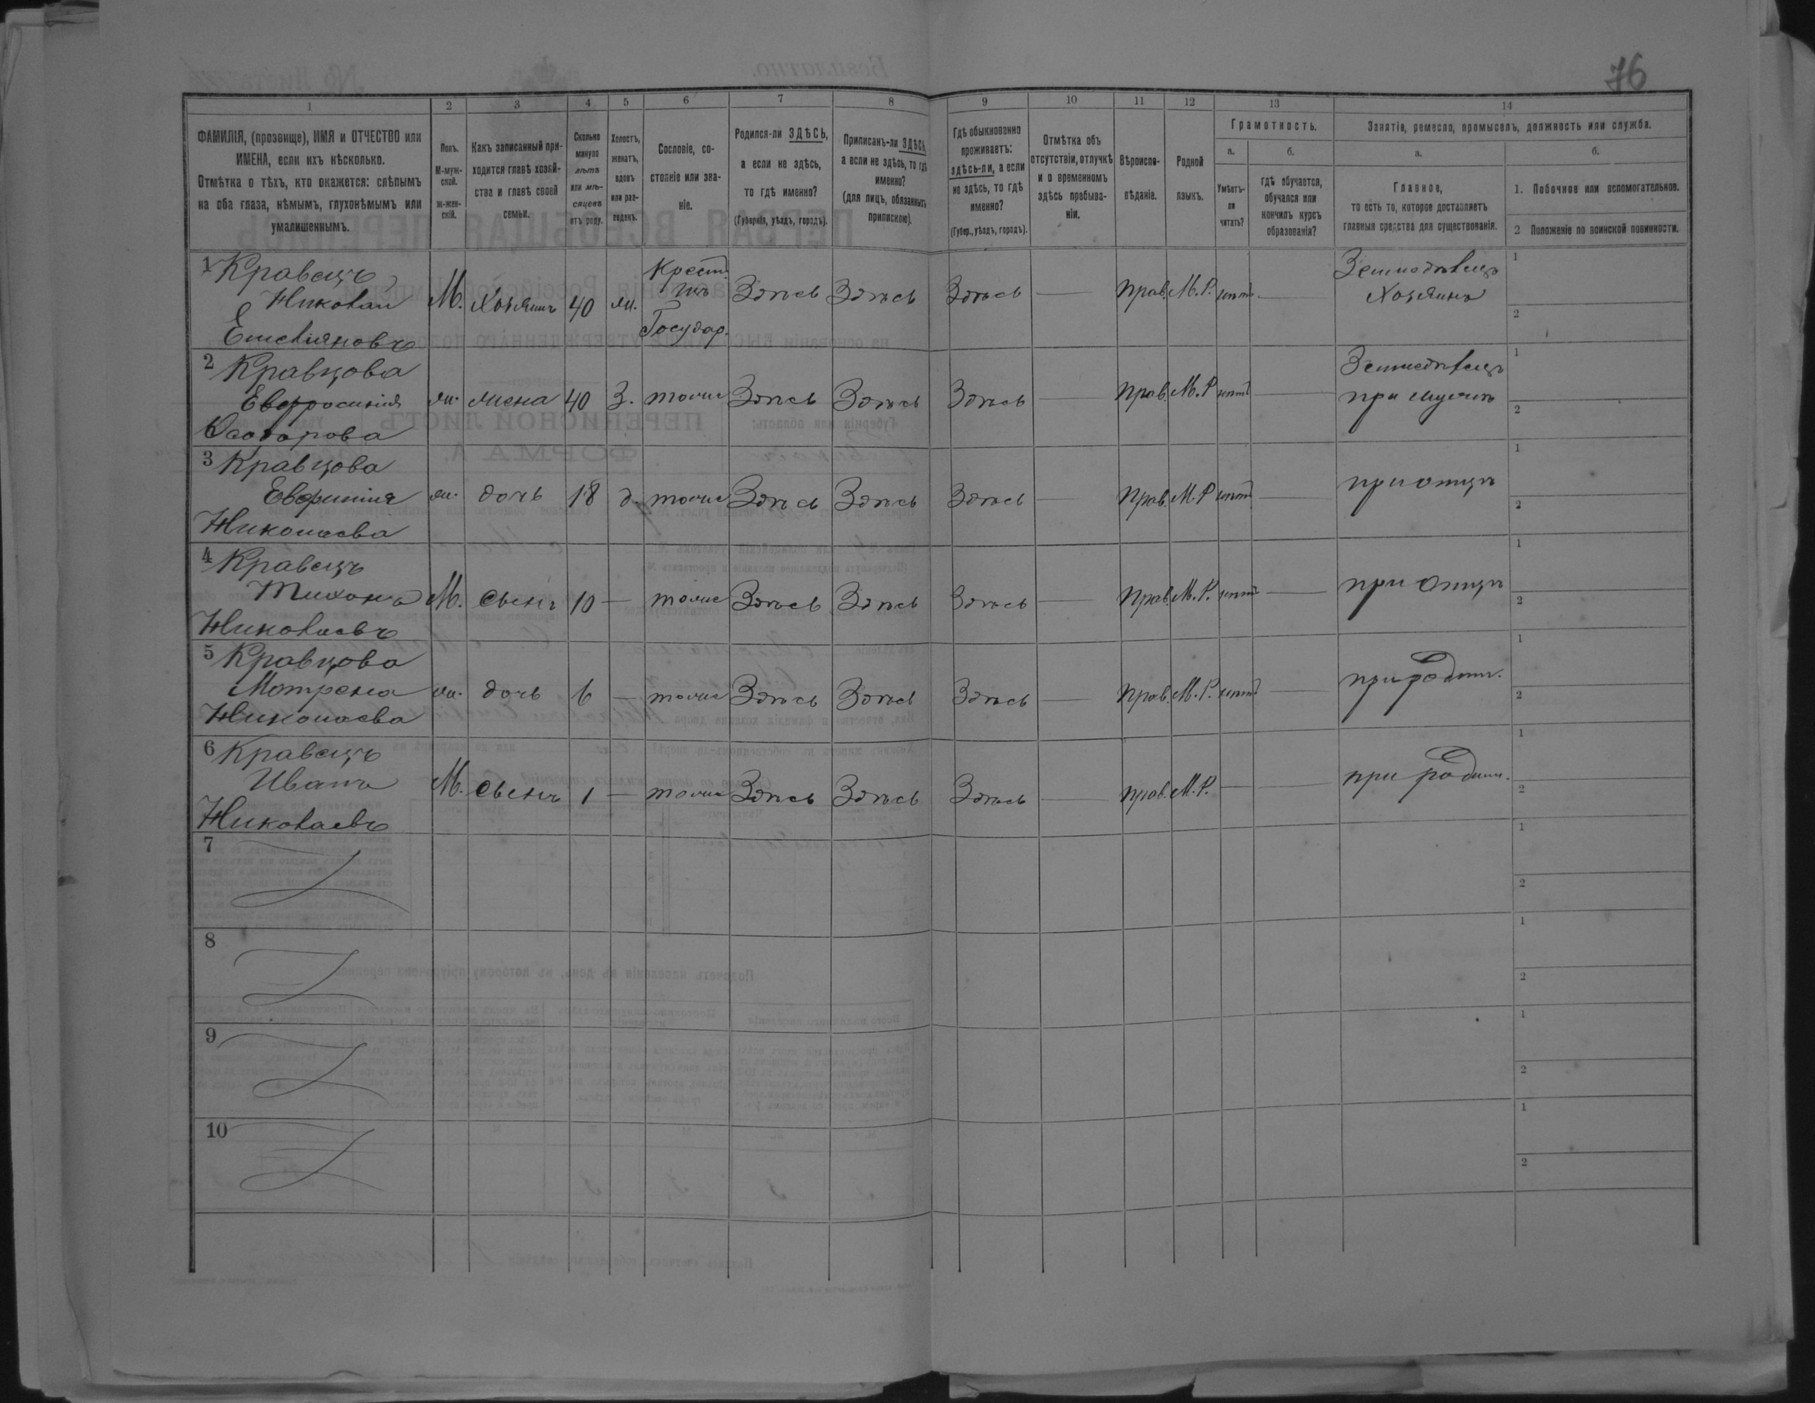 76
1 2 3 4 5 6 7 8 9 10 11 12 13 14
ФАМИЛІЯ, (прозвище), ИМЯ и ОТЧЕСТВО или
ИМЕНА, если ихъ нѣсколько.
Отмѣтка о тѣхъ, кто окажется: слѣпымъ
на оба глаза, нѣмымъ, глухонѣмымъ или
умалишеннымъ.
Полъ.
М-муж-
ской.
ж-жен-
скій.
Какъ записанный при-
ходится главѣ хозяй-
ства и главѣ своей
семьи.
Сколько
минуло
лѣтъ
или мѣ-
сяцевъ
отъ роду.
Холостъ,
женатъ,
вдовъ
или раз-
веденъ.
Сословіе, со-
стояніе или зва-
ніе.
Родился-ли ЗДѢСЬ,
а если не здѣсь,
то гдѣ именно?
(Губернія, уѣздъ, городъ).
Приписанъ-ли ЗДѢСЬ,
а если не здѣсь, то гдѣ
именно?
(для лицъ, обязанныхъ
припискою).
Гдѣ обыкновенно
проживаетъ:
здѣсь-ли, а если
не здѣсь, то гдѣ
именно?
(Губер., уѣздъ, городъ).
Отмѣтка объ
отсутствіи, отлучкѣ
и о временномъ
здѣсь пребыва-
ніи.
Вѣроиспо-
вѣданіе.
Родной
языкъ.
Грамотность.
а. б.
Умѣетъ-
ли
читать?
гдѣ обучается,
обучался или
кончилъ курсъ
образованія?
Занятіе, ремесло, промыселъ, должность или служба.
а. б.
Главное,
то есть то, которое доставляетъ
главныя средства для существованія.
1. Побочное или вспомогательное.
2 Положеніе по воинской повинности.
1 Кравецъ
Николай
Емельяновъ
М. Хозяинъ 40 ж. Крест.
Государ.
Здѣсь Здѣсь Здѣсь — Прав. М.Р. нѣтъ — Земледѣлецъ
Хозяинъ
1
2
2 Кравцова
Евфросинія
Ѳеодорова
ж. жена 40 З. тоже Здѣсь Здѣсь Здѣсь — Прав. М.Р. нѣтъ — Земледѣлецъ
при мужѣ
1
2
3 Кравцова
Евфимія
Николаева
ж. дочь 18 д. тоже Здѣсь Здѣсь Здѣсь — Прав. М.Р. нѣтъ — при отцѣ
1
2
4 Кравецъ
Тихонъ
Николаевъ
М. сынъ 10 — тоже Здѣсь Здѣсь Здѣсь — Прав. М.Р. нѣтъ — при отцѣ
1
2
5 Кравцова
Мотрона
Николаева
ж. дочь 6 — тоже Здѣсь Здѣсь Здѣсь — Прав. М.Р. нѣтъ — при родит.
1
2
6 Кравецъ
Иванъ
Николаевъ
М. сынъ 1 — тоже Здѣсь Здѣсь Здѣсь — Прав. М.Р. — — при родит.
1
2
7
1
2
8
1
2
9
1
2
10
1
2